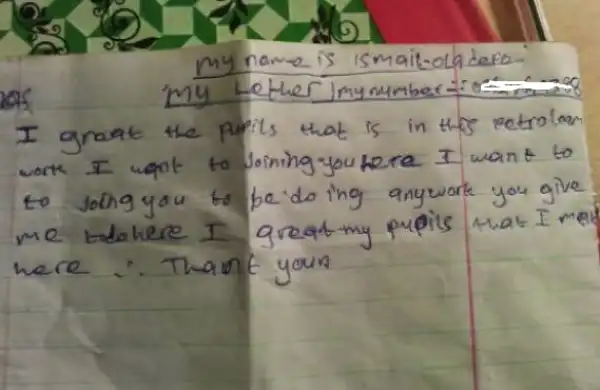 my name is ismail-oladera
my Letter | my number =
I great the pupils that is in this petroleum
work I want to Joining you here I want to
to Joing you to be do ing anywork you give
me todo here I great my pupils that I met
here ∴ Thank your